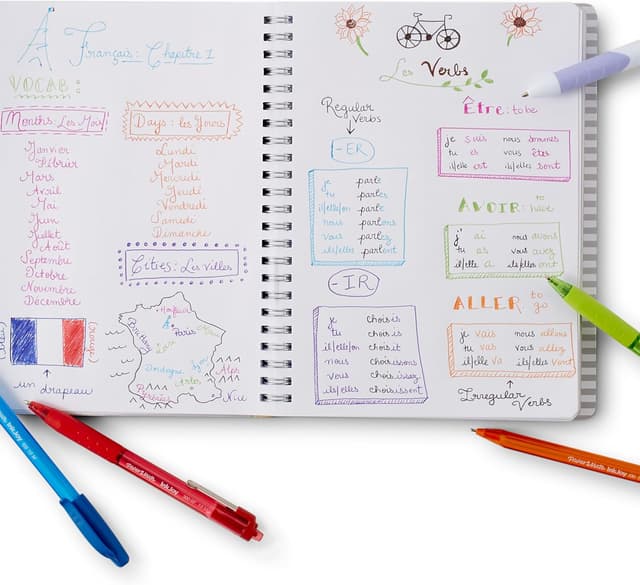 Français: Chapitre 1
VOCAB:
Months: Les Mois
Janvier
Février
Mars
Avril
Mai
Juin
Juillet
Août
Septembre
Octobre
Novembre
Décembre
Days: les Jours
Lundi
Mardi
Mercredi
Jeudi
Vendredi
Samedi
Dimanche
Cities: Les Villes
un drapeau
Paris
Dordogne
Arles
Nice
Les Verbs
Regular
Verbs
-ER
je parle
tu parles
il/elle/on parle
nous parlons
vous parlez
ils/elles parlent
-IR
je choisis
tu choisis
il/elle/on choisit
nous choisissons
vous choisissez
ils/elles choisissent
Être: to be
je suis nous sommes
tu es vous êtes
il/elle est ils/elles sont
AVOIR: to have
j' ai nous avons
tu as vous avez
il/elle a ils/elles ont
ALLER to go
je vais nous allons
tu vas vous allez
il/elle va ils/elles vont
Irregular
Verbs
PaperMate InkJoy
PaperMate InkJoy
PaperMate InkJoy